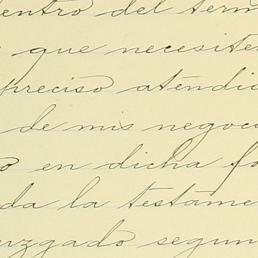 dentro del term
que necesite
preciso atendid
de mis negoc
o en dicha fo
da la testame
uzgado segun